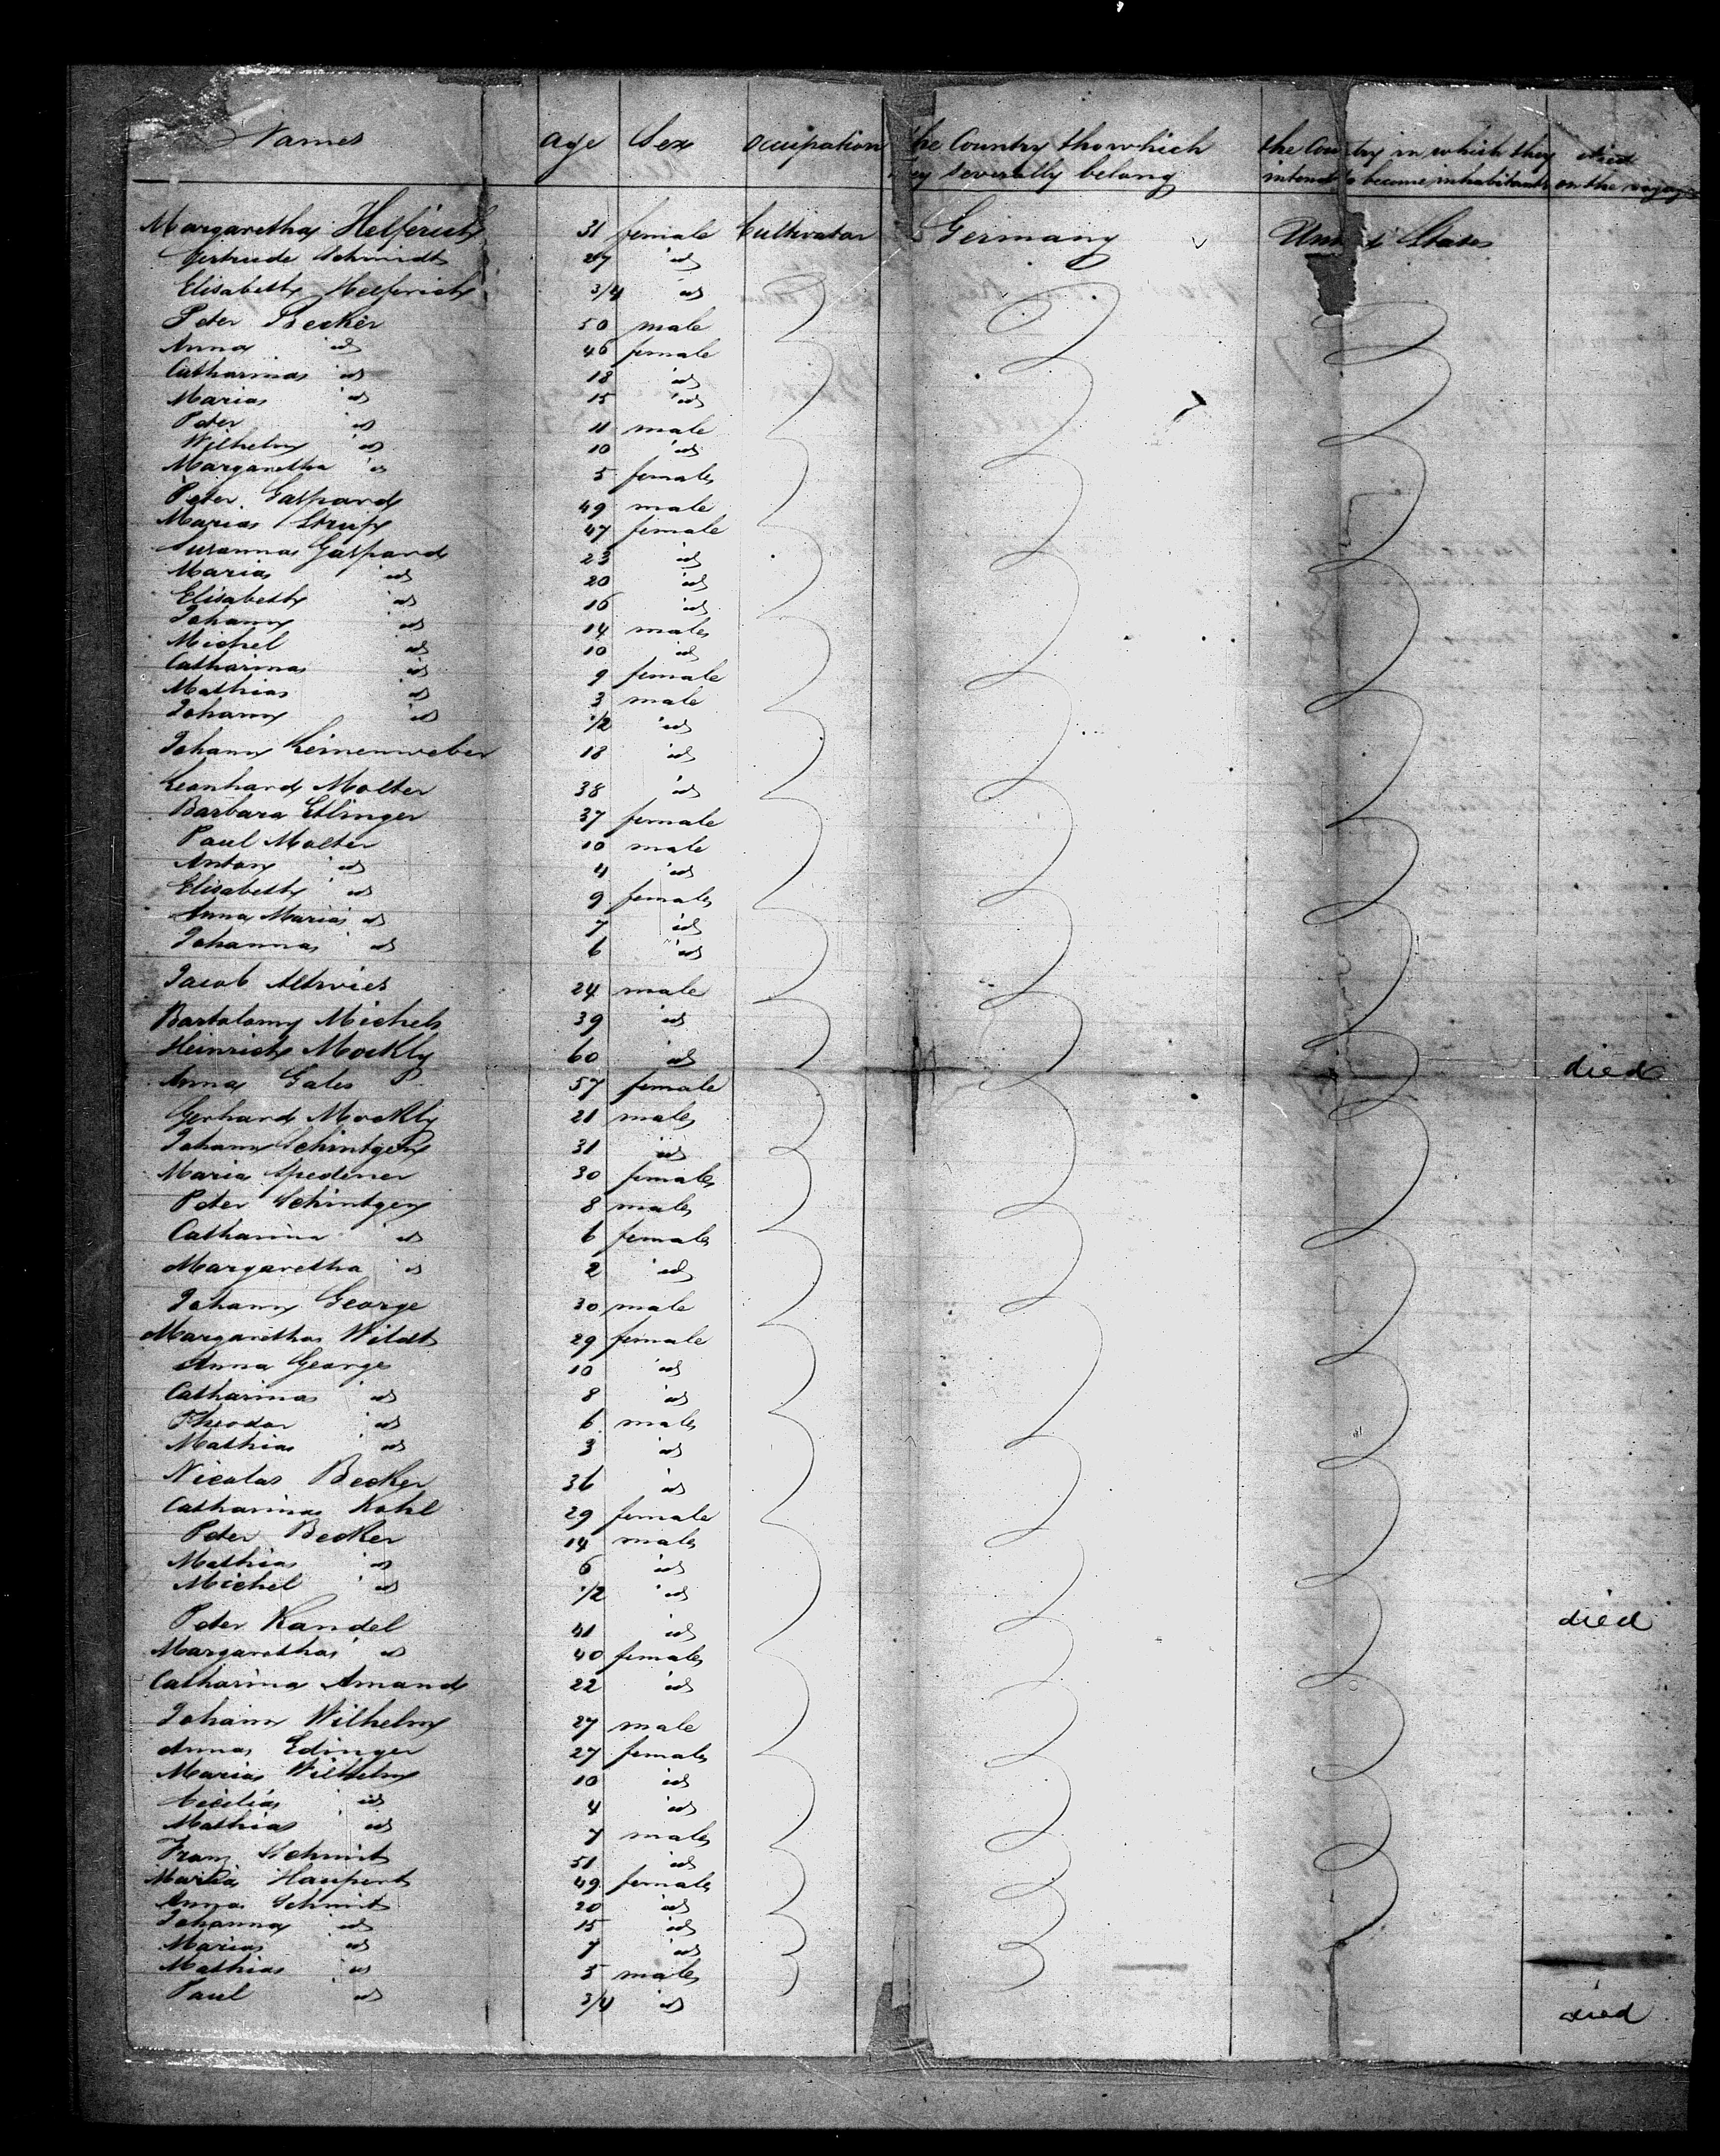 Names age Sex Occupation the Country tho which the Country in which they died
they severally belong intend to become inhabitants on the voyage
Margaretha Helferich 31 female Cultivator Germany United States
Gertrude Schmidt 27 id
Elisabeth Helferich 3/4 id
Peter Becker 50 male
Anna id 46 female
Catharina id 18 id
Maria id 15 id
Peter id 11 male
Wilhelm id 10 id
Margaretha id 5 female
Peter Gaspard 49 male
Maria 47 female
Susanna Gaspard 23 id
Maria id 20 id
Elisabeth id 16 id
Johann id 14 male
Michel id 10 id
Catharina id 9 female
Mathias id 3 male
Johann id 1/2 id
Johann Leinenweber 18 id
Leonhard Molter 38 id
Barbara Etlinger 37 female
Paul Molter 10 male
Anton id 4 id
Elisabeth id 9 female
Anna Maria id 7 id
Johanna id 6 id
Jacob Altwies 24 male
Bartolomy Michels 39 id
Heinrich Mockly 60 id died
Anna Gales 57 female
Gerhard Mockly 21 male
Johann Schintgen 31 id
Maria Spedener 30 female
Peter Schintgen 8 male
Catharina id 6 female
Margaretha id 2 id
Johann George 30 male
Margaretha Wildt 29 female
Anna George 10 id
Catharina id 8 id
Theodor id 6 male
Mathias id 3 id
Nicolas Becker 36 id
Catharina Kohl 29 female
Peter Becker 14 male
Mathias id 6 id
Michel id 1/2 id died
Peter Kandel 41 id
Margaretha id 40 female
Catharina Amand 22 id
Johann Wilhelm 27 male
Anna Edinger 27 female
Maria Wilhelm 10 id
Cecilia id 4 id
Mathias id 7 male
Franz Schmit 51 id
Maria Haupert 49 female
Anna Schmit 20 id
Johanna id 15 id
Maria id 7 id
Mathias id 5 male
Paul id 3/4 id died